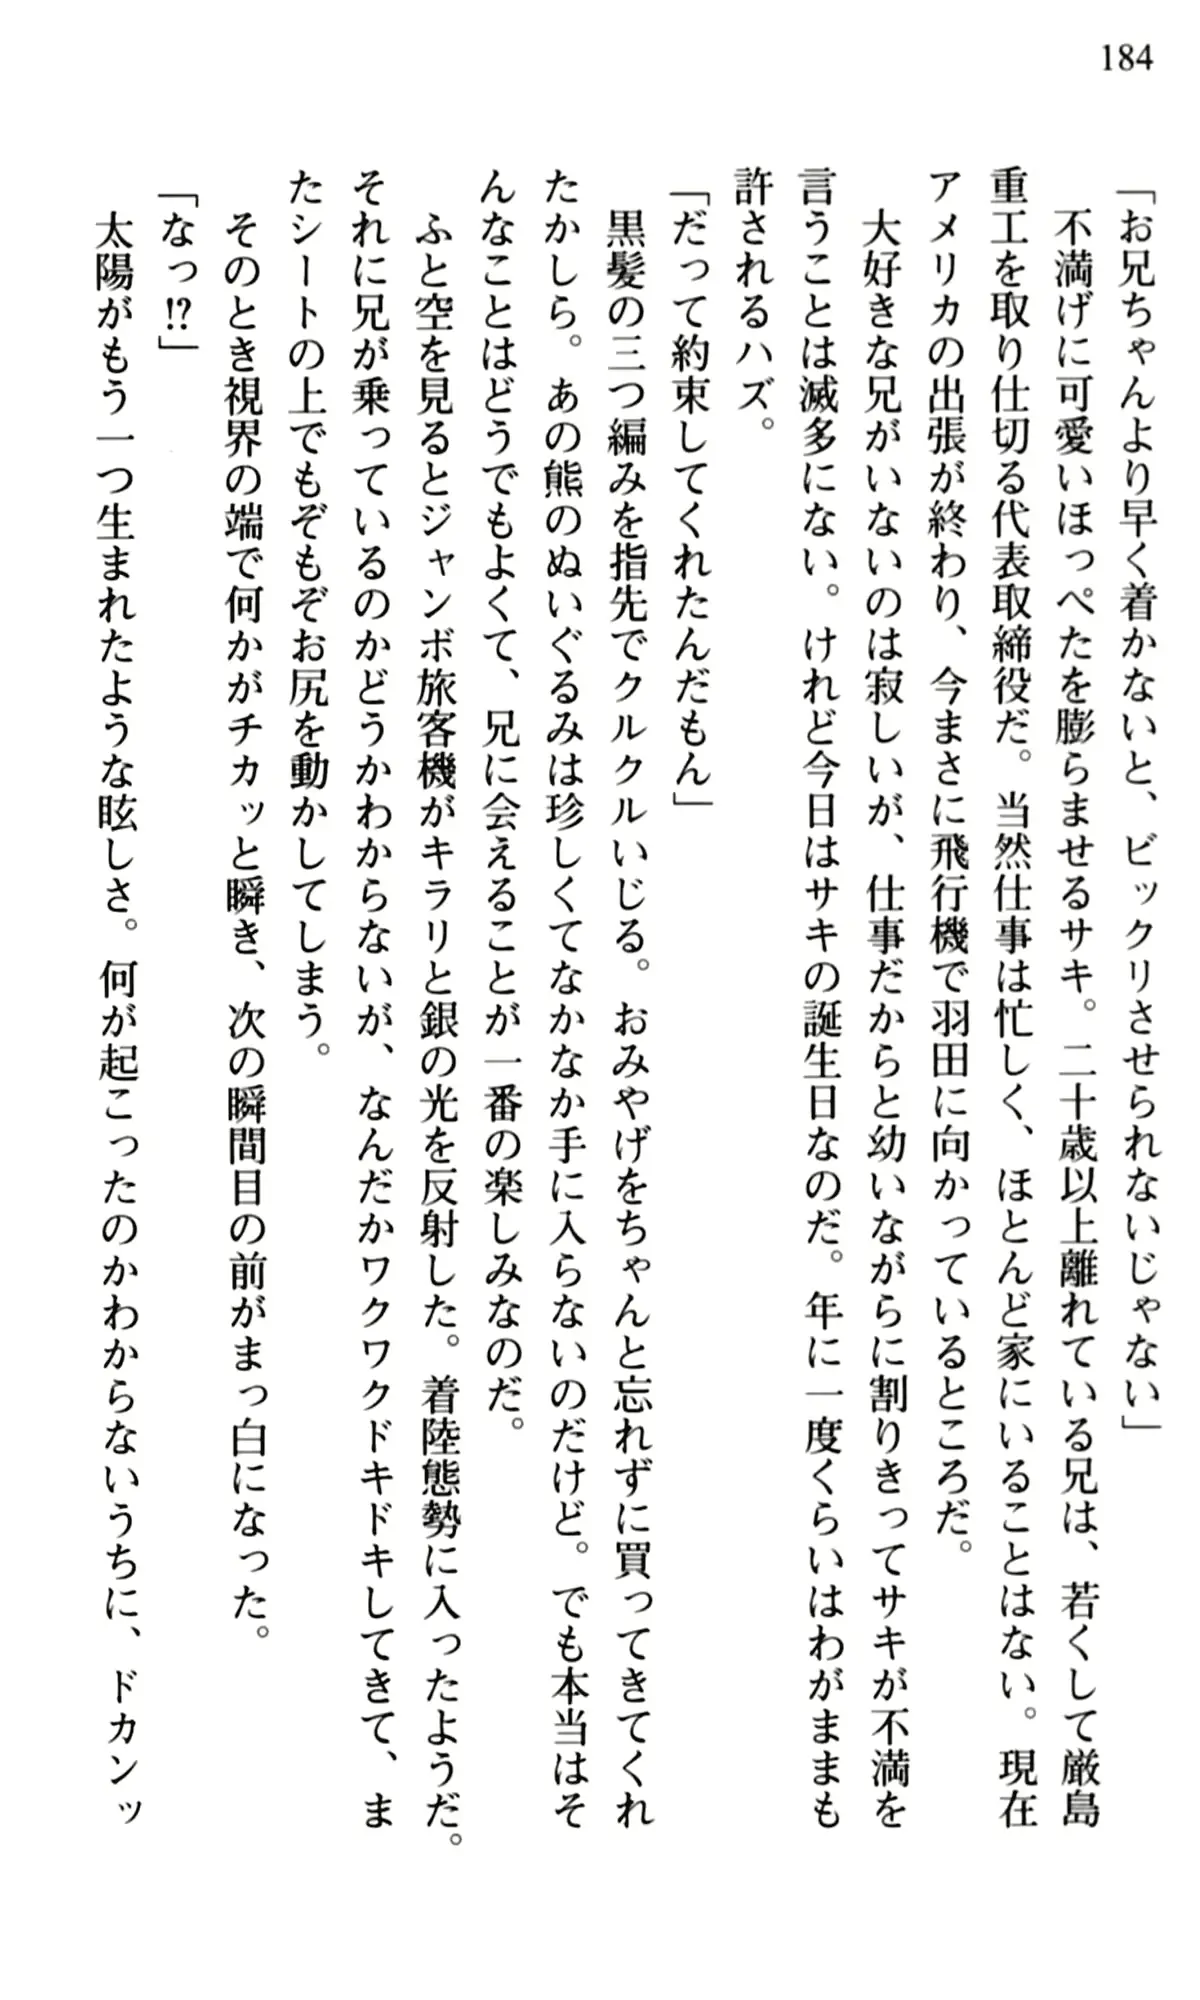 184
「お兄ちゃんより早く着かないと、ビックリさせられないじゃない」
不満げに可愛いほっぺたを膨らませるサキ。二十歳以上離れている兄は、若くして厳島
重工を取り仕切る代表取締役だ。当然仕事は忙しく、ほとんど家にいることはない。現在
アメリカの出張が終わり、今まさに飛行機で羽田に向かっているところだ。
大好きな兄がいないのは寂しいが、仕事だからと幼いながらに割りきってサキが不満を
言うことは滅多にない。けれど今日はサキの誕生日なのだ。年に一度くらいはわがままも
許されるハズ。
「だって約束してくれたんだもん」
黒髪の三つ編みを指先でクルクルいじる。おみやげをちゃんと忘れずに買ってきてくれ
たかしら。あの熊のぬいぐるみは珍しくてなかなか手に入らないのだけど。でも本当はそ
んなことはどうでもよくて、兄に会えることが一番の楽しみなのだ。
ふと空を見るとジャンボ旅客機がキラリと銀の光を反射した。着陸態勢に入ったようだ。
それに兄が乗っているのかどうかわからないが、なんだかワクワクドキドキしてきて、ま
たシートの上でもぞもぞお尻を動かしてしまう。
そのとき視界の端で何かがチカッと瞬き、次の瞬間目の前がまっ白になった。
「なっ!?」
太陽がもう一つ生まれたような眩しさ。何が起こったのかわからないうちに、ドカンッ